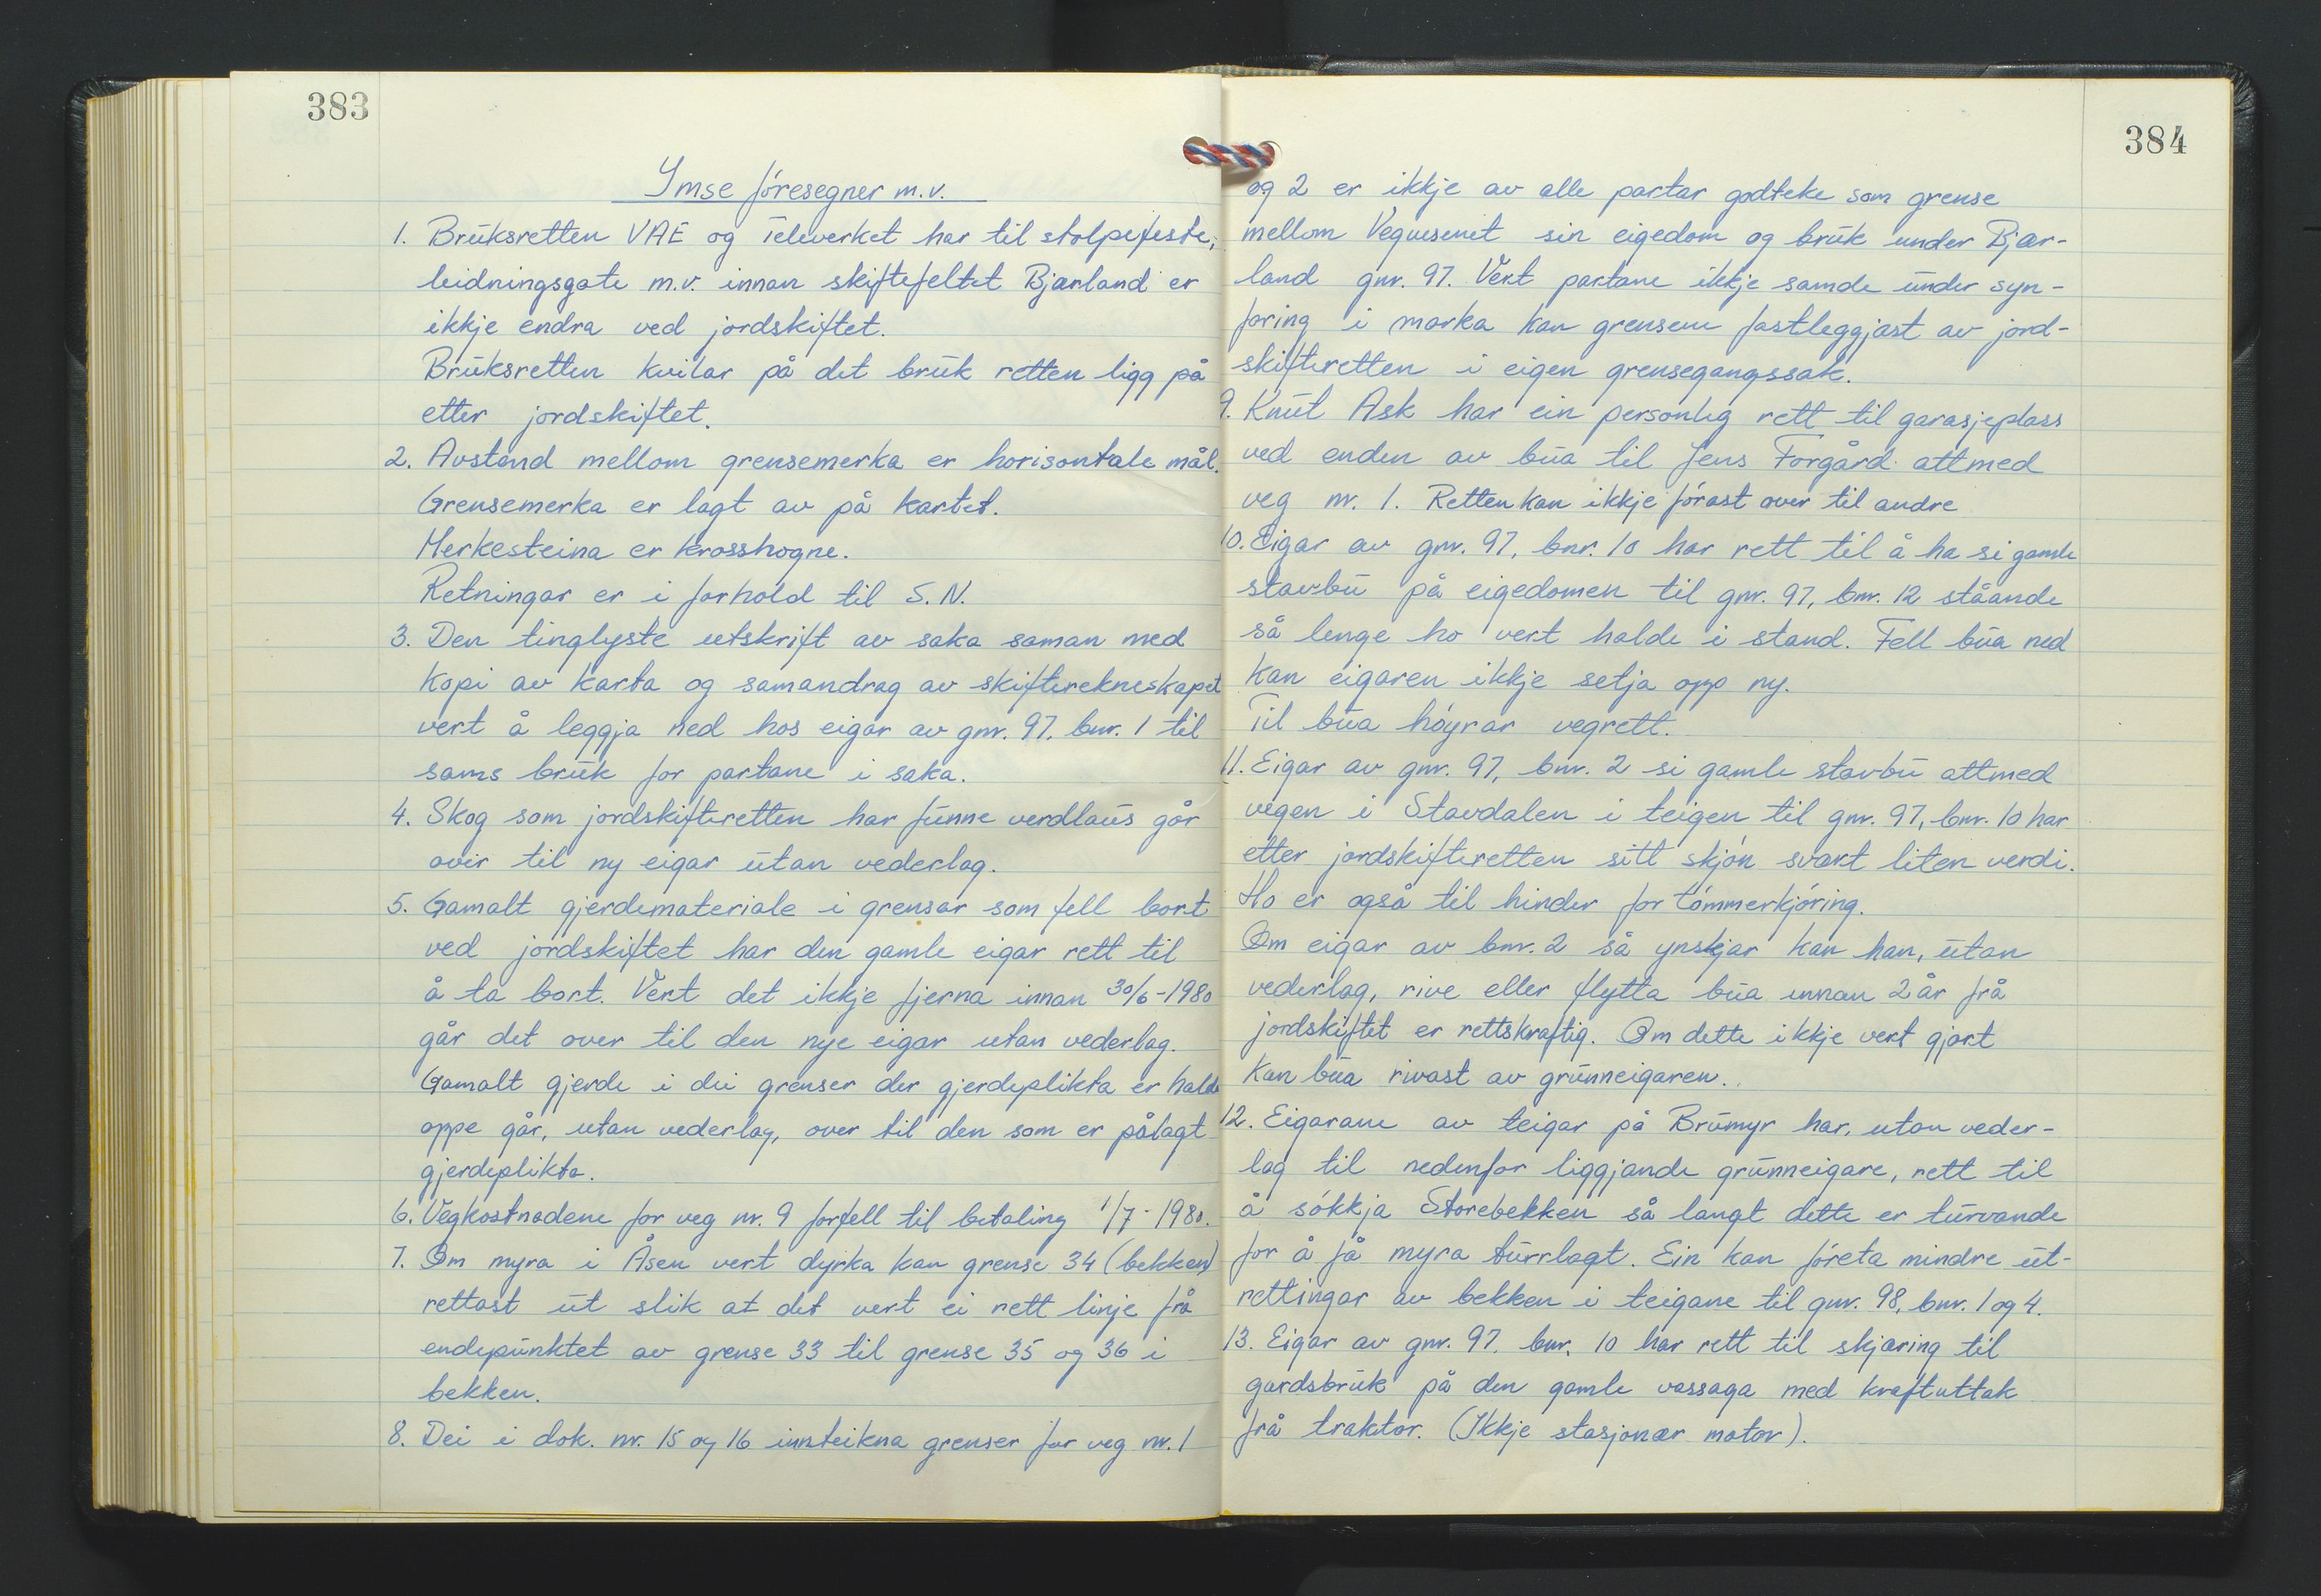 383
Ymse føresegner m.v.
1. Bruksretten VAE og Televerket har til stolpefeste,
leidningsgate m.v. innan skiftefeltet Bjærland er
ikkje endra ved jordskiftet.
Bruksretten kvilar på det bruk retten ligg på
etter jordskiftet.
2. Avstand mellom grensemerka er horisontale mål.
Grensemerka er lagt av på kartet.
Merkesteina er krosshogne.
Retningar er i forhold til S.N.
3. Den tinglyste utskrift av saka saman med
kopi av karta og samandrag av skifterekneskapet
vert å leggja ned hos eigar av gnr. 97, bnr. 1 til
sams bruk for partane i saka.
4. Skog som jordskifteretten har funne verdlaus går
over til ny eigar utan vederlag.
5. Gamalt gjerdemateriale i grensar som fell bort
ved jordskiftet har den gamle eigar rett til
å ta bort. Vert det ikkje fjerna innan 30/6-1980
går det over til den nye eigar utan vederlag.
Gamalt gjerde i dei grenser der gjerdeplikta er halde
oppe går, utan vederlag, over til den som er pålagt
gjerdeplikta.
6. Vegkostnadene for veg nr. 9 forfell til betaling 1/7-1980.
7. Om myra i Åsen vert dyrka kan grense 34 (bekken)
rettast ut slik at det vert ei rett linje frå
endepunktet av grense 33 til grense 35 og 36 i
bekken.
8. Dei i dok. nr. 15 og 16 innteikna grenser for veg nr. 1
384
og 2 er ikkje av alle partar godteke som grense
mellom Vegvesenet sin eigedom og bruk under Bjær-
land gnr. 97. Vert partane ikkje samde under syn-
faring i marka kan grensene fastleggjast av jord-
skifteretten i eigen grensegangssak.
9. Knut Ask har ein personleg rett til garasjeplass
ved enden av bua til Jens Forgård attmed
veg nr. 1. Retten kan ikkje førast over til andre
10. Eigar av gnr. 97, bnr. 10 har rett til å ha si gamle
stavbu på eigedomen til gnr. 97, bnr. 12 ståande
så lenge ho vert halde i stand. Fell bua ned
kan eigaren ikkje setja opp ny.
Til bua høyrar vegrett.
11. Eigar av gnr. 97, bnr. 2 si gamle stavbu attmed
vegen i Stavdalen i teigen til gnr. 97, bnr. 10 har
etter jordskifteretten sitt skjøn svært liten verdi.
Ho er også til hinder for tømmerkjøring.
Om eigar av bnr. 2 så ynskjar kan han, utan
vederlag, rive eller flytta bua innan 2 år frå
jordskiftet er rettskraftig. Om dette ikkje vert gjort
kan bua rivast av grunneigaren.
12. Eigarane av teigar på Brumyr har, utan veder-
lag til nedenfor liggjande grunneigare, rett til
å søkkja Storebekken så langt dette er turvande
for å få myra turrlagt. Ein kan føreta mindre ut-
rettingar av bekken i teigane til gnr. 98, bnr. 1 og 4.
13. Eigar av gnr. 97, bnr. 10 har rett til skjæring til
gardsbruk på den gamle vassaga med kraftuttak
frå traktor. (Ikkje stasjonær motor).